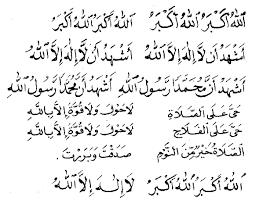 اَللهُ اَكْبَرُ اَللهُ اَكْبَرُ اَللهُ اَكْبَرُ اَللهُ اَكْبَرُ
اَشْهَدُ اَنْ لَا اِلٰهَ اِلَّا اللهُ اَشْهَدُ اَنْ لَا اِلٰهَ اِلَّا اللهُ
اَشْهَدُ اَنَّ مُحَمَّدًا رَسُوْلُ اللهِ اَشْهَدُ اَنَّ مُحَمَّدًا رَسُوْلُ اللهِ
حَيَّ عَلَى الصَّلَاةِ لَاحَوْلَ وَلَا قُوَّةَ اِلَّا بِاللهِ
حَيَّ عَلَى الْفَلَاحِ لَاحَوْلَ وَلَا قُوَّةَ اِلَّا بِاللهِ
اَلصَّلَاةُ خَيْرٌ مِنَ النَّوْمِ صَدَقْتَ وَبَرَرْتَ.
اَللهُ اَكْبَرُ اَللهُ اَكْبَرُ لَا اِلٰهَ اِلَّا اللهُ